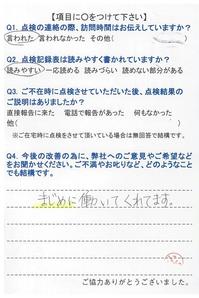 【項目に〇をつけて下さい】
Q1. 点検の連絡の際、訪問時間はお伝えしていますか?
言われた 言われなかった その他( )
Q2. 点検記録表は読みやすく書かれていますか?
読みやすい 一応読める 読みづらい 読めない部分がある
Q3. ご不在時に点検させていただいた後、点検結果の
ご説明はありましたか?
直接報告に来た 電話で報告があった 何もなかった
他( )
※ご在宅時に点検をさせて頂いている場合は無回答で結構です。
Q4. 今後の改善の為に、弊社へのご意見やご希望など
をお聞かせください。ご不満やお叱りなど、どのようなこと
でも結構です。
まじめに働いてくれてます。
ご協力ありがとうございました。